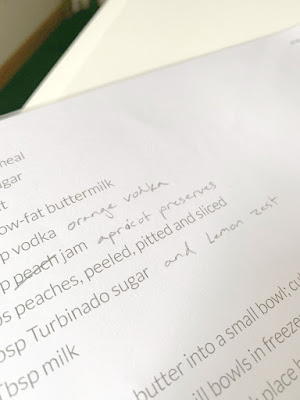 meal
ugar
t
ow-fat buttermilk
p vodka orange vodka
p peach jam apricot preserves
s peaches, peeled, pitted and sliced
bsp Turbinado sugar and Lemon zest
Tbsp milk
butter into a small bowl; cu
ill bowls in freezer
k place b